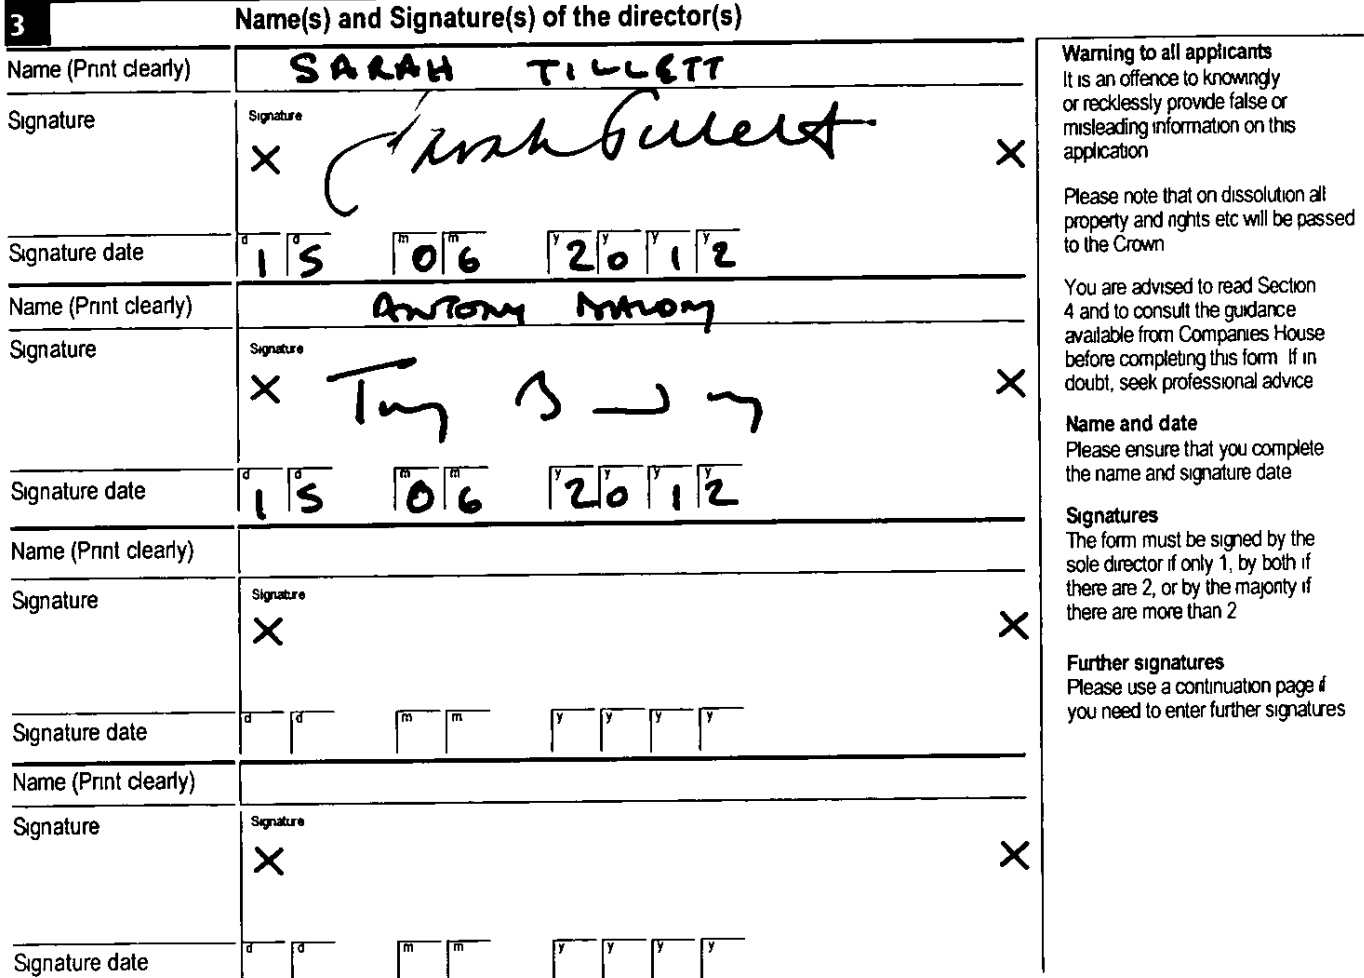 3 Name(s) and Signature(s) of the director(s)
Name (Print clearly) SARAH TILLETT
Signature
Signature
X Sarah Tillett X
Signature date d d m m y y y y
15 06 2012
Name (Print clearly) ANTONY
Signature
Signature
X Tony X
Signature date d d m m y y y y
15 06 2012
Name (Print clearly)
Signature
Signature
X X
Signature date d d m m y y y y
Name (Print clearly)
Signature
Signature
X X
Signature date d d m m y y y y
Warning to all applicants
It is an offence to knowingly
or recklessly provide false or
misleading information on this
application
Please note that on dissolution all
property and rights etc will be passed
to the Crown
You are advised to read Section
4 and to consult the guidance
available from Companies House
before completing this form If in
doubt, seek professional advice
Name and date
Please ensure that you complete
the name and signature date
Signatures
The form must be signed by the
sole director if only 1, by both if
there are 2, or by the majority if
there are more than 2
Further signatures
Please use a continuation page if
you need to enter further signatures